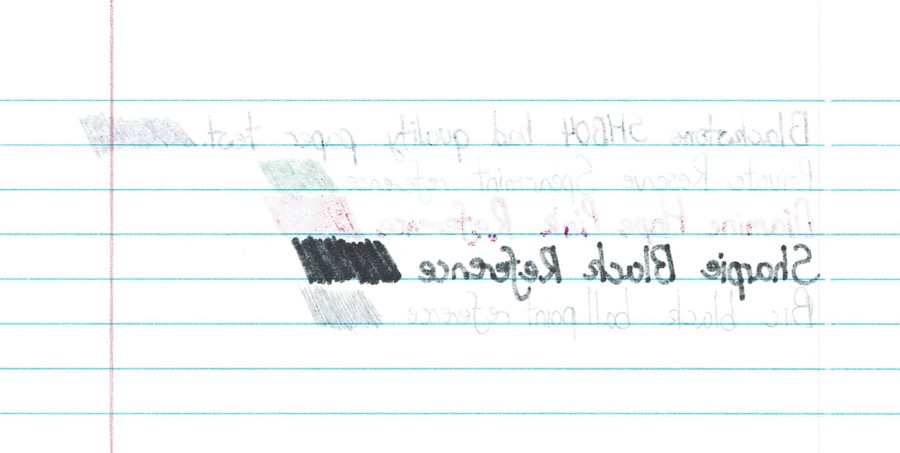 Blackstone SMB04 bad quality paper test.
Private Reserve Spearmint reference
Pink Reference
Sharpie Black Reference
Bic black ballpoint reference